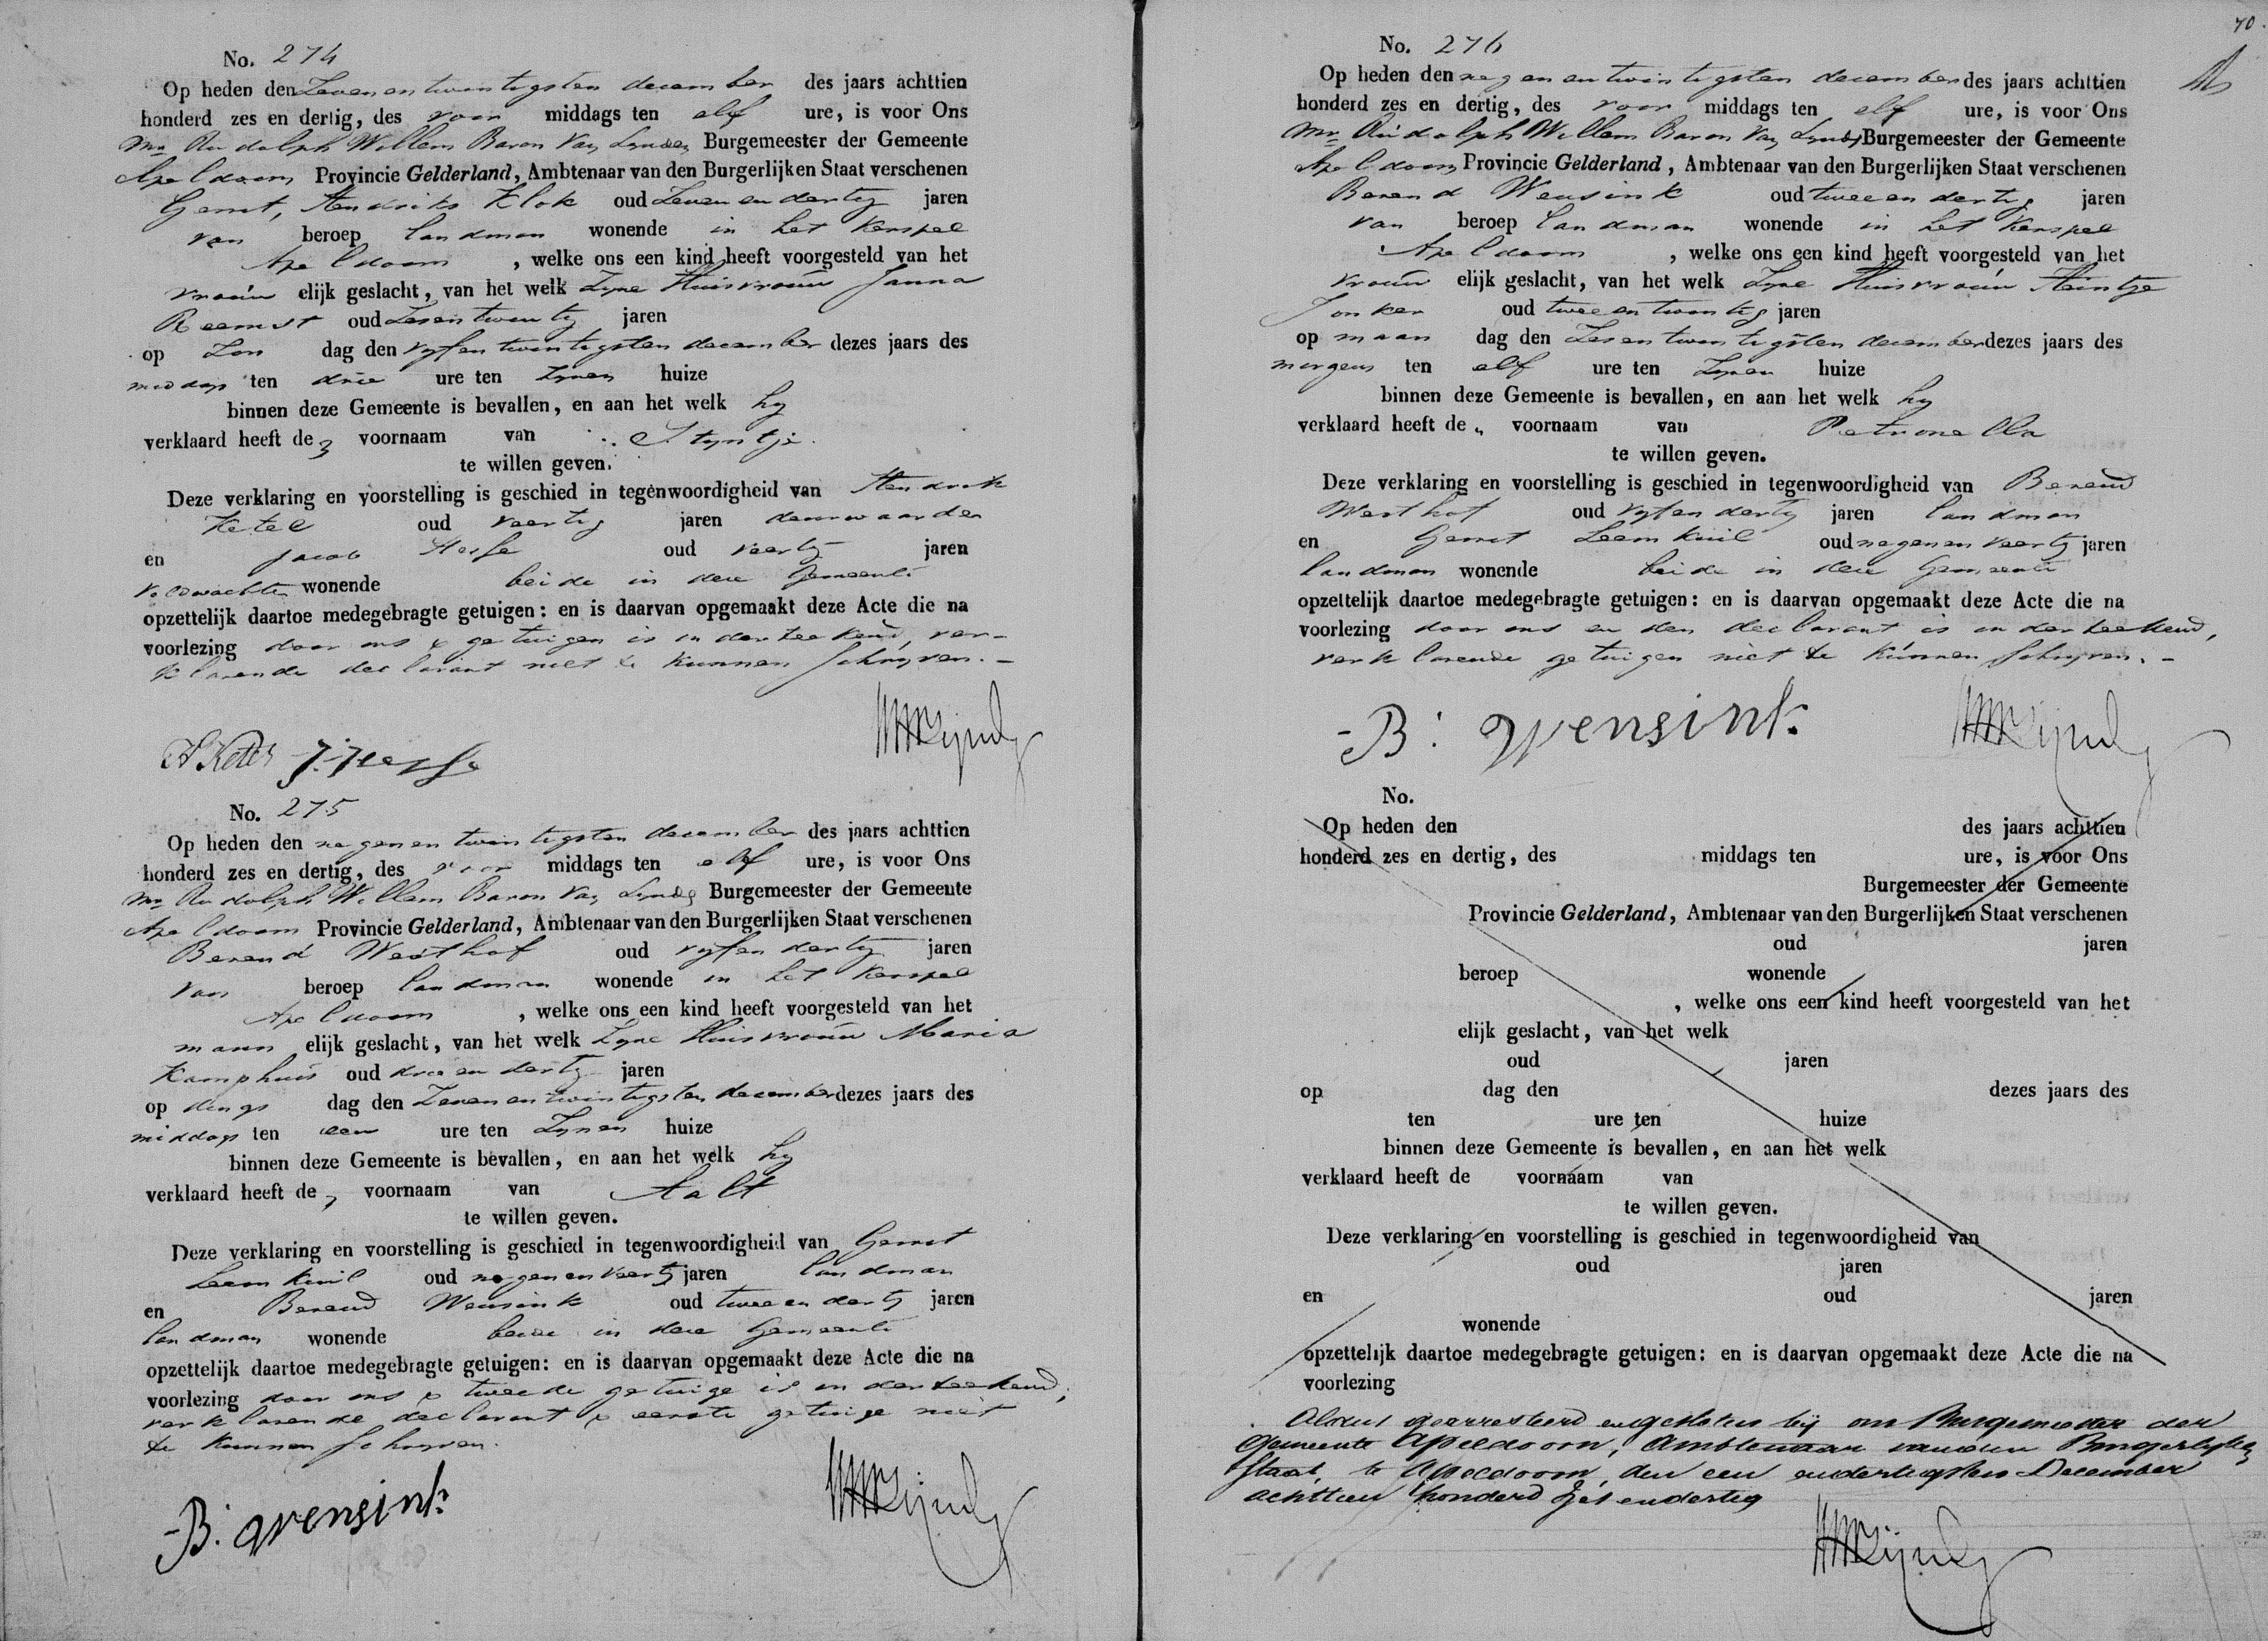 No. 274
Op heden den Zevenentwintigsten december des jaars achttien
honderd zes en dertig, des voor middags ten elf ure, is voor Ons
Mr Rudolph Willem Baron Van Lynden Burgemeester der Gemeente
Apeldoorn Provincie Gelderland, Ambtenaar van den Burgerlijken Staat verschenen
Gerrit, Hendriks Klok oud Zevenendertig jaren
van beroep landman wonende in het Kerspel
Apeldoorn , welke ons een kind heeft voorgesteld van het
vrouw elijk geslacht, van het welk Zyne Huisvrouw Janna
Reemst oud Zesentwintig jaren
op Zon dag den vyfentwintigsten december dezes jaars des
middags ten drie ure ten Zynen huize
binnen deze Gemeente is bevallen, en aan het welk hy
verklaard heeft de voornaam van Styntje.
te willen geven.
Deze verklaring en voorstelling is geschied in tegenwoordigheid van Hendrik
Ketel oud veertig jaren deurwaarder
en Jacob oud veertig jaren
veldwachter wonende beide in deze Gemeente
opzettelijk daartoe medegebragte getuigen: en is daarvan opgemaakt deze Acte die na
voorlezing door ons & getuigen is onderteekend, ver-
klarende declarant niet te kunnen Schryven. -
H Ketel
No. 275
Op heden den negenentwintigsten december des jaars achttien
honderd zes en dertig, des voor middags ten elf ure, is voor Ons
Mr Rudolph Willem Baron Van Lynden Burgemeester der Gemeente
Apeldoorn Provincie Gelderland, Ambtenaar van den Burgerlijken Staat verschenen
Berend Westhof oud vyfendertig jaren
van beroep landman wonende in het Kerspel
Apeldoorn , welke ons een kind heeft voorgesteld van het
mann elijk geslacht, van het welk Zyne Huisvrouw Maria
Kamphuis oud drieendertig jaren
op dings dag den Zevenentwintigsten december dezes jaars des
middags ten een ure ten Zynen huize
binnen deze Gemeente is bevallen, en aan het welk hy
verklaard heeft de voornaam van Aalt
te willen geven.
Deze verklaring en voorstelling is geschied in tegenwoordigheid van Gerrit
Leemkuil oud negenenveertig jaren landman
en Berend Wensink oud tweeendertig jaren
landman wonende beide in deze Gemeente
opzettelijk daartoe medegebragte getuigen: en is daarvan opgemaakt deze Acte die na
voorlezing door ons & tweede getuige is onderteekend,
verklarende declarant & eerste getuige niet
te kunnen Schryven.
B: Wensink
70.
No. 276
Op heden den negenentwintigsten december des jaars achttien
honderd zes en dertig, des voor middags ten elf ure, is voor Ons
Mr Rudolph Willem Baron Van Lynden Burgemeester der Gemeente
Apeldoorn Provincie Gelderland, Ambtenaar van den Burgerlijken Staat verschenen
Berend Wensink oud tweeendertig jaren
van beroep landman wonende in het Kerspel
Apeldoorn , welke ons een kind heeft voorgesteld van het
vrouw elijk geslacht, van het welk Zyne Huisvrouw Heintje
Jonker oud tweeentwintig jaren
op maan dag den Zesentwintigsten december dezes jaars des
morgens ten elf ure ten Zynen huize
binnen deze Gemeente is bevallen, en aan het welk hy
verklaard heeft de voornaam van Petronella
te willen geven.
Deze verklaring en voorstelling is geschied in tegenwoordigheid van Berend
Westhof oud vyfendertig jaren landman
en Gerrit Leemkuil oud negenenveertig jaren
landman wonende beide in deze Gemeente
opzettelijk daartoe medegebragte getuigen: en is daarvan opgemaakt deze Acte die na
voorlezing door ons en den declarant is onderteekend,
verklarende getuigen niet te kunnen Schryven. -
B: Wensink
No.
Op heden den des jaars achttien
honderd zes en dertig, des middags ten ure, is voor Ons
Burgemeester der Gemeente
Provincie Gelderland, Ambtenaar van den Burgerlijken Staat verschenen
oud jaren
beroep wonende
, welke ons een kind heeft voorgesteld van het
elijk geslacht, van het welk
oud jaren
op dag den dezes jaars des
ten ure ten huize
binnen deze Gemeente is bevallen, en aan het welk
verklaard heeft de voornaam van
te willen geven.
Deze verklaring en voorstelling is geschied in tegenwoordigheid van
oud jaren
en oud jaren
wonende
opzettelijk daartoe medegebragte getuigen: en is daarvan opgemaakt deze Acte die na
voorlezing
Aldus gearresteerd en gesloten bij ons Burgemeester der
Gemeente Apeldoorn, Ambtenaar van den Burgerlyken
Staat, te Apeldoorn, den een endertigsten December
achttien honderd Zes endertig